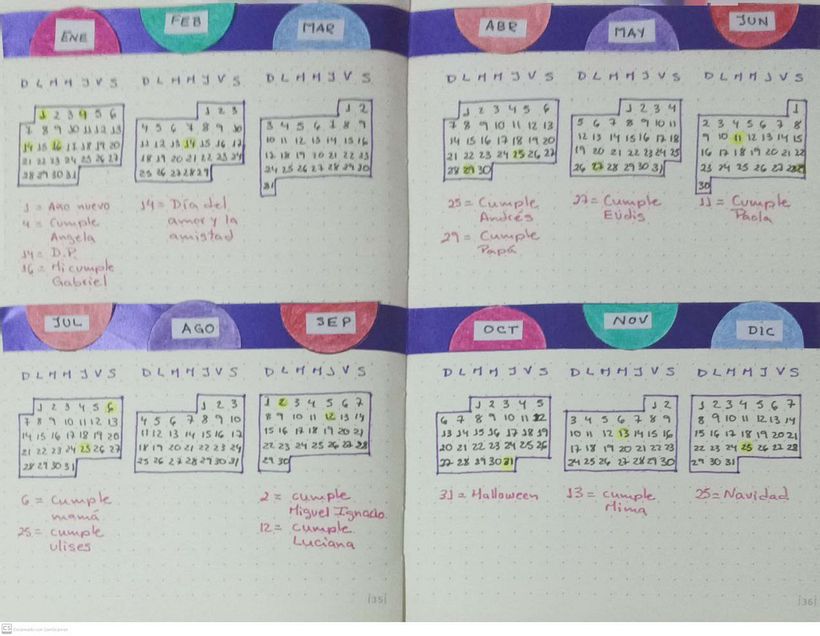 ENE
D L M M J V S
1 2 3 4 5 6
7 8 9 10 11 12 13
14 15 16 17 18 19 20
21 22 23 24 25 26 27
28 29 30 31
1 = Año nuevo
4 = Cumple
Angela
14 = D.P.
16 = Mi cumple
Gabriel
FEB
D L M M J V S
1 2 3
4 5 6 7 8 9 10
11 12 13 14 15 16 17
18 19 20 21 22 23 24
25 26 27 28 29
14 = Día del
amor y la
amistad
MAR
D L M M J V S
1 2
3 4 5 6 7 8 9
10 11 12 13 14 15 16
17 18 19 20 21 22 23
24 25 26 27 28 29 30
31
ABR
D L M M J V S
1 2 3 4 5 6
7 8 9 10 11 12 13
14 15 16 17 18 19 20
21 22 23 24 25 26 27
28 29 30
25 = Cumple
Andrés
29 = Cumple
Papá
MAY
D L M M J V S
1 2 3 4
5 6 7 8 9 10 11
12 13 14 15 16 17 18
19 20 21 22 23 24 25
26 27 28 29 30 31
27 = Cumple
Eudis
JUN
D L M M J V S
1
2 3 4 5 6 7 8
9 10 11 12 13 14 15
16 17 18 19 20 21 22
23 24 25 26 27 28 29
30
11 = Cumple
Paola
JUL
D L M M J V S
1 2 3 4 5 6
7 8 9 10 11 12 13
14 15 16 17 18 19 20
21 22 23 24 25 26 27
28 29 30 31
6 = Cumple
mamá
25 = cumple
ulises
AGO
D L M M J V S
1 2 3
4 5 6 7 8 9 10
11 12 13 14 15 16 17
18 19 20 21 22 23 24
25 26 27 28 29 30 31
SEP
D L M M J V S
1 2 3 4 5 6 7
8 9 10 11 12 13 14
15 16 17 18 19 20 21
22 23 24 25 26 27 28
29 30
2 = cumple
Miguel Ignacio
12 = cumple
Luciana
|35|
OCT
D L M M J V S
1 2 3 4 5
6 7 8 9 10 11 12
13 14 15 16 17 18 19
20 21 22 23 24 25 26
27 28 29 30 31
31 = Halloween
NOV
D L M M J V S
1 2
3 4 5 6 7 8 9
10 11 12 13 14 15 16
17 18 19 20 21 22 23
24 25 26 27 28 29 30
13 = cumple
Mima
DIC
D L M M J V S
1 2 3 4 5 6 7
8 9 10 11 12 13 14
15 16 17 18 19 20 21
22 23 24 25 26 27 28
29 30 31
25 = Navidad
|36|
CS Escaneado con CamScanner